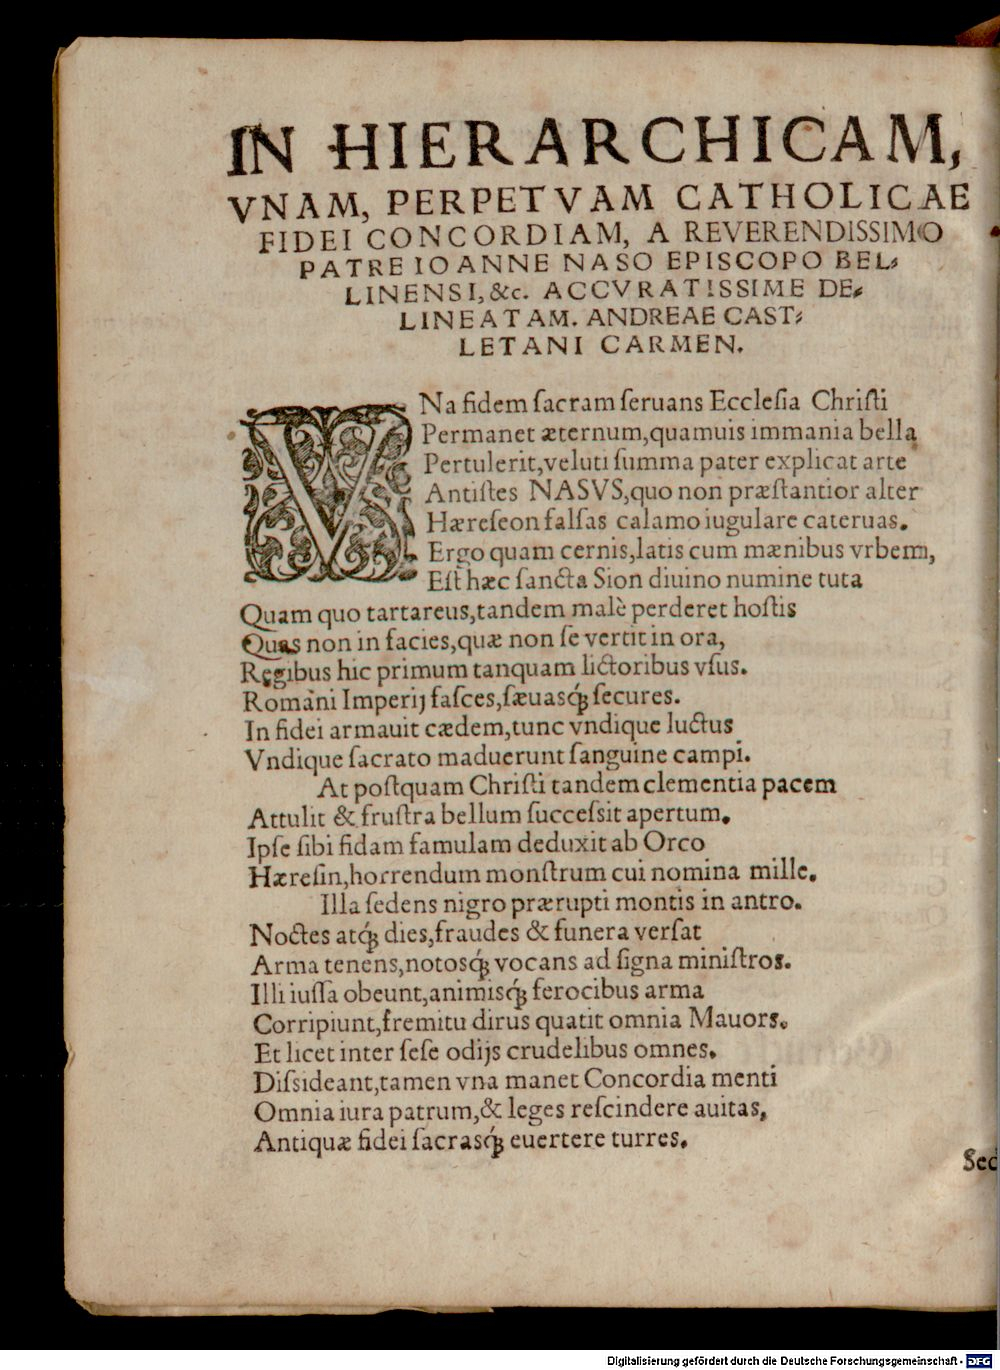 IN HIERARCHICAM,
VNAM, PERPETVAM CATHOLICAE
FIDEI CONCORDIAM, A REVERENDISSIMO
PATRE IOANNE NASO EPISCOPO BEL⸗
LINENSI, &c. ACCVRATISSIME DE⸗
LINEATAM. ANDREAE CAST⸗
LETANI CARMEN.
VNa fidem ſacram ſeruans Eccleſia Chriſti
Permanet æternum, quamuis immania bella
Pertulerit, veluti ſumma pater explicat arte
Antiſtes NASVS, quo non præſtantior alter
Hæreſeon falſas calamo iugulare cateruas.
Ergo quam cernis, latis cum mænibus vrbem,
Eſt hæc ſancta Sion diuino numine tuta
Quam quo tartareus, tandem malè perderet hoſtis
Quas non in facies, quæ non ſe vertit in ora,
Regibus hic primum tanquam lictoribus vſus.
Romani Imperij faſces, ſæuasq́; ſecures.
In fidei armauit cædem, tunc vndique luctus
Vndique ſacrato maduerunt ſanguine campi.
At poſtquam Chriſti tandem clementia pacem
Attulit & fruſtra bellum ſucceſsit apertum.
Ipſe ſibi fidam famulam deduxit ab Orco
Hæreſin, horrendum monſtrum cui nomina mille.
Illa ſedens nigro prærupti montis in antro.
Noctes atq́; dies, fraudes & funera verſat
Arma tenens, notosq́; vocans ad ſigna miniſtros.
Illi iuſſa obeunt, animisq́; ferocibus arma
Corripiunt, fremitu dirus quatit omnia Mauors.
Et licet inter ſeſe odijs crudelibus omnes.
Diſsideant, tamen vna manet Concordia menti
Omnia iura patrum, & leges reſcindere auitas,
Antiquæ fidei ſacrasq́; euertere turres.
Sed
Digitalisierung gefördert durch die Deutsche Forschungsgemeinschaft - DFG